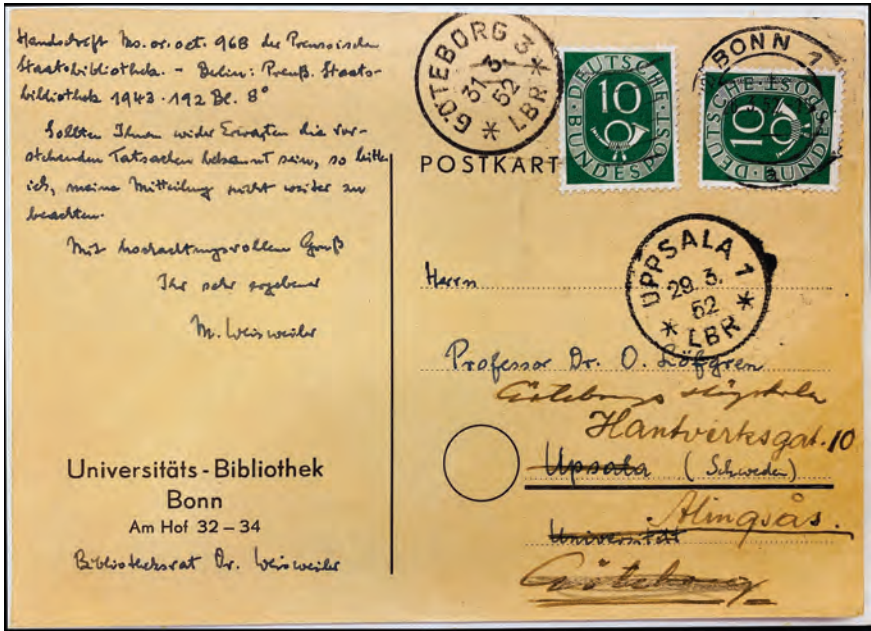 Handschrift Ms. or. oct. 968 der Preussischen
Staatsbibliothek. - Berlin: Preuß. Staats-
bibliothek 1943. 192 Bl. 8°
Sollten Ihnen wider Erwarten die vor-
stehenden Tatsachen bekannt sein, so bitte
ich, meine Mitteilung nicht weiter zu
beachten.
Mit hochachtungsvollem Gruß
Ihr sehr ergebener
M. Weisweiler
Universitäts-Bibliothek
Bonn
Am Hof 32 – 34
Bibliotheksrat Dr. Weisweiler
GÖTEBORG 3
31 3
52
* LBR *
DEUTSCHE BUNDESPOST
10
BONN 1
a
DEUTSCHE BUNDESPOST
10
POSTKART
UPPSALA 1
29. 3.
52
* LBR *
Herrn
Professor Dr. O. Löfgren
Göteborgs Högskola
Hantverksgat. 10
Upsala (Schweden)
Alingsås.
Universität
Göteborg